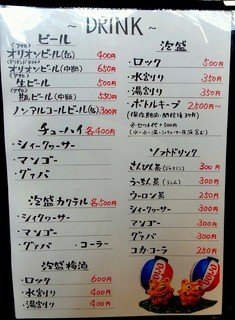 ~ DRINK ~
ビール
(アサヒ)
オリオンビール(缶) 400円
(オリオンドラフト)
オリオンビール(中瓶) 650円
(アサヒ)
生ビール 500円
(アサヒ)
瓶ビール(中瓶) 550円
ノンアルコールビール(缶) 300円
チューハイ 各400円
・シィークヮーサー
・マンゴー
・グァバ
泡盛カクテル 各500円
・シィクヮサー
・マンゴー
・グァバ ・コーラー
泡盛梅酒
・ロック 600円
・水割り 400円
・湯割り 400円
泡盛
・ロック 500円
・水割り 350円
・湯割り 350円
・ボトルキープ 2500円~
(保存期間:開栓後3ヶ月)
ソフトドリンク
さんぴん茶(ジャスミン) 300円
うっちん茶(うこん) 300円
ウーロン茶 250円
シィクヮーサー 300円
マンゴー 300円
グァバ 300円
コカ・コーラ 250円